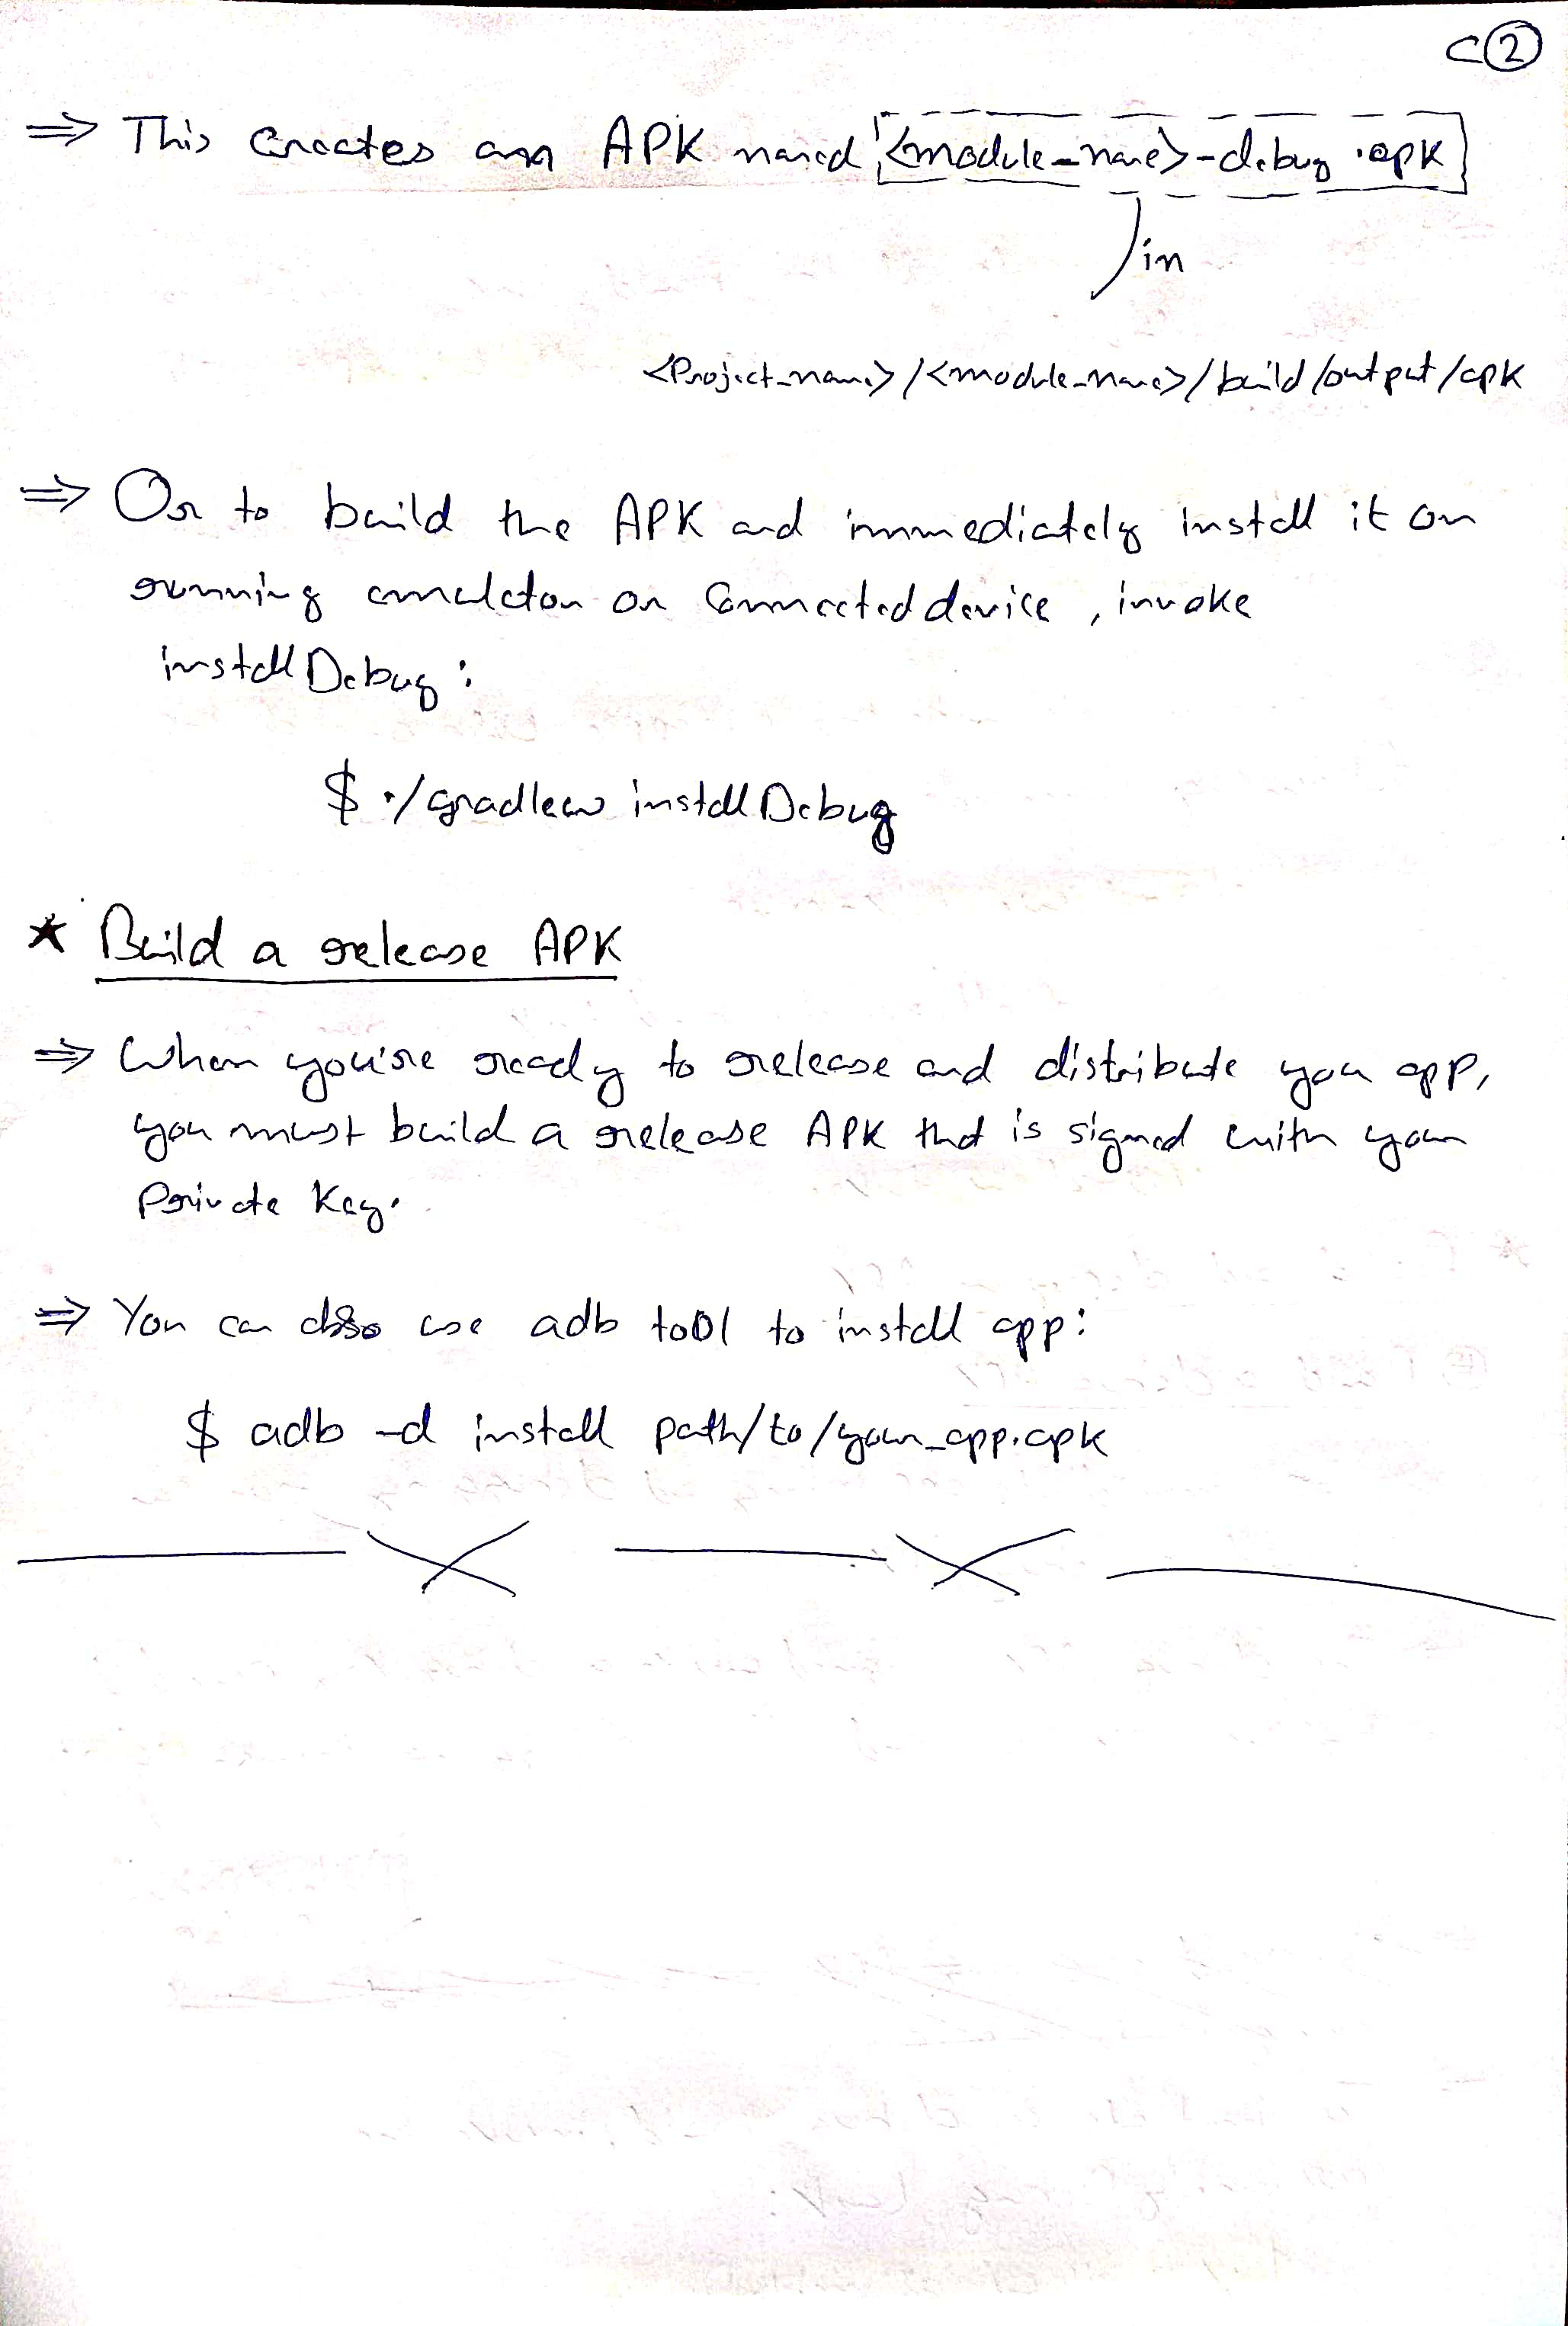 C②
⇒ This Creates an APK named <module_name>-debug.apk
in
<Project_name>/<module_name>/build/output/apk
⇒ Or to build the APK and immediately install it on
running emulator or Connected device, invoke
install Debug:
$ ./gradlew install Debug
* Build a release APK
⇒ When you're ready to release and distribute you app,
you must build a release APK that is signed with your
Private Key.
⇒ You can also use adb tool to install app:
$ adb -d install path/to/your_app.apk